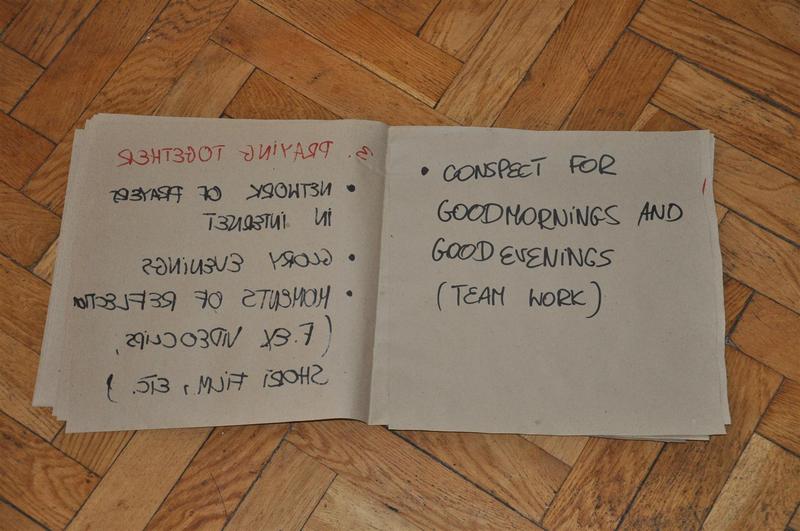 3. PRAYING TOGETHER
• NETWORK OF PRAYERS
IN INTERNET
• GLORY EVENINGS
• MOMENTS OF REFLECTION
(F.EX VIDEOCLIPS,
SHORT FILM, ETC.)
• CONSPECT FOR
GOODMORNINGS AND
GOOD EVENINGS
(TEAM WORK)